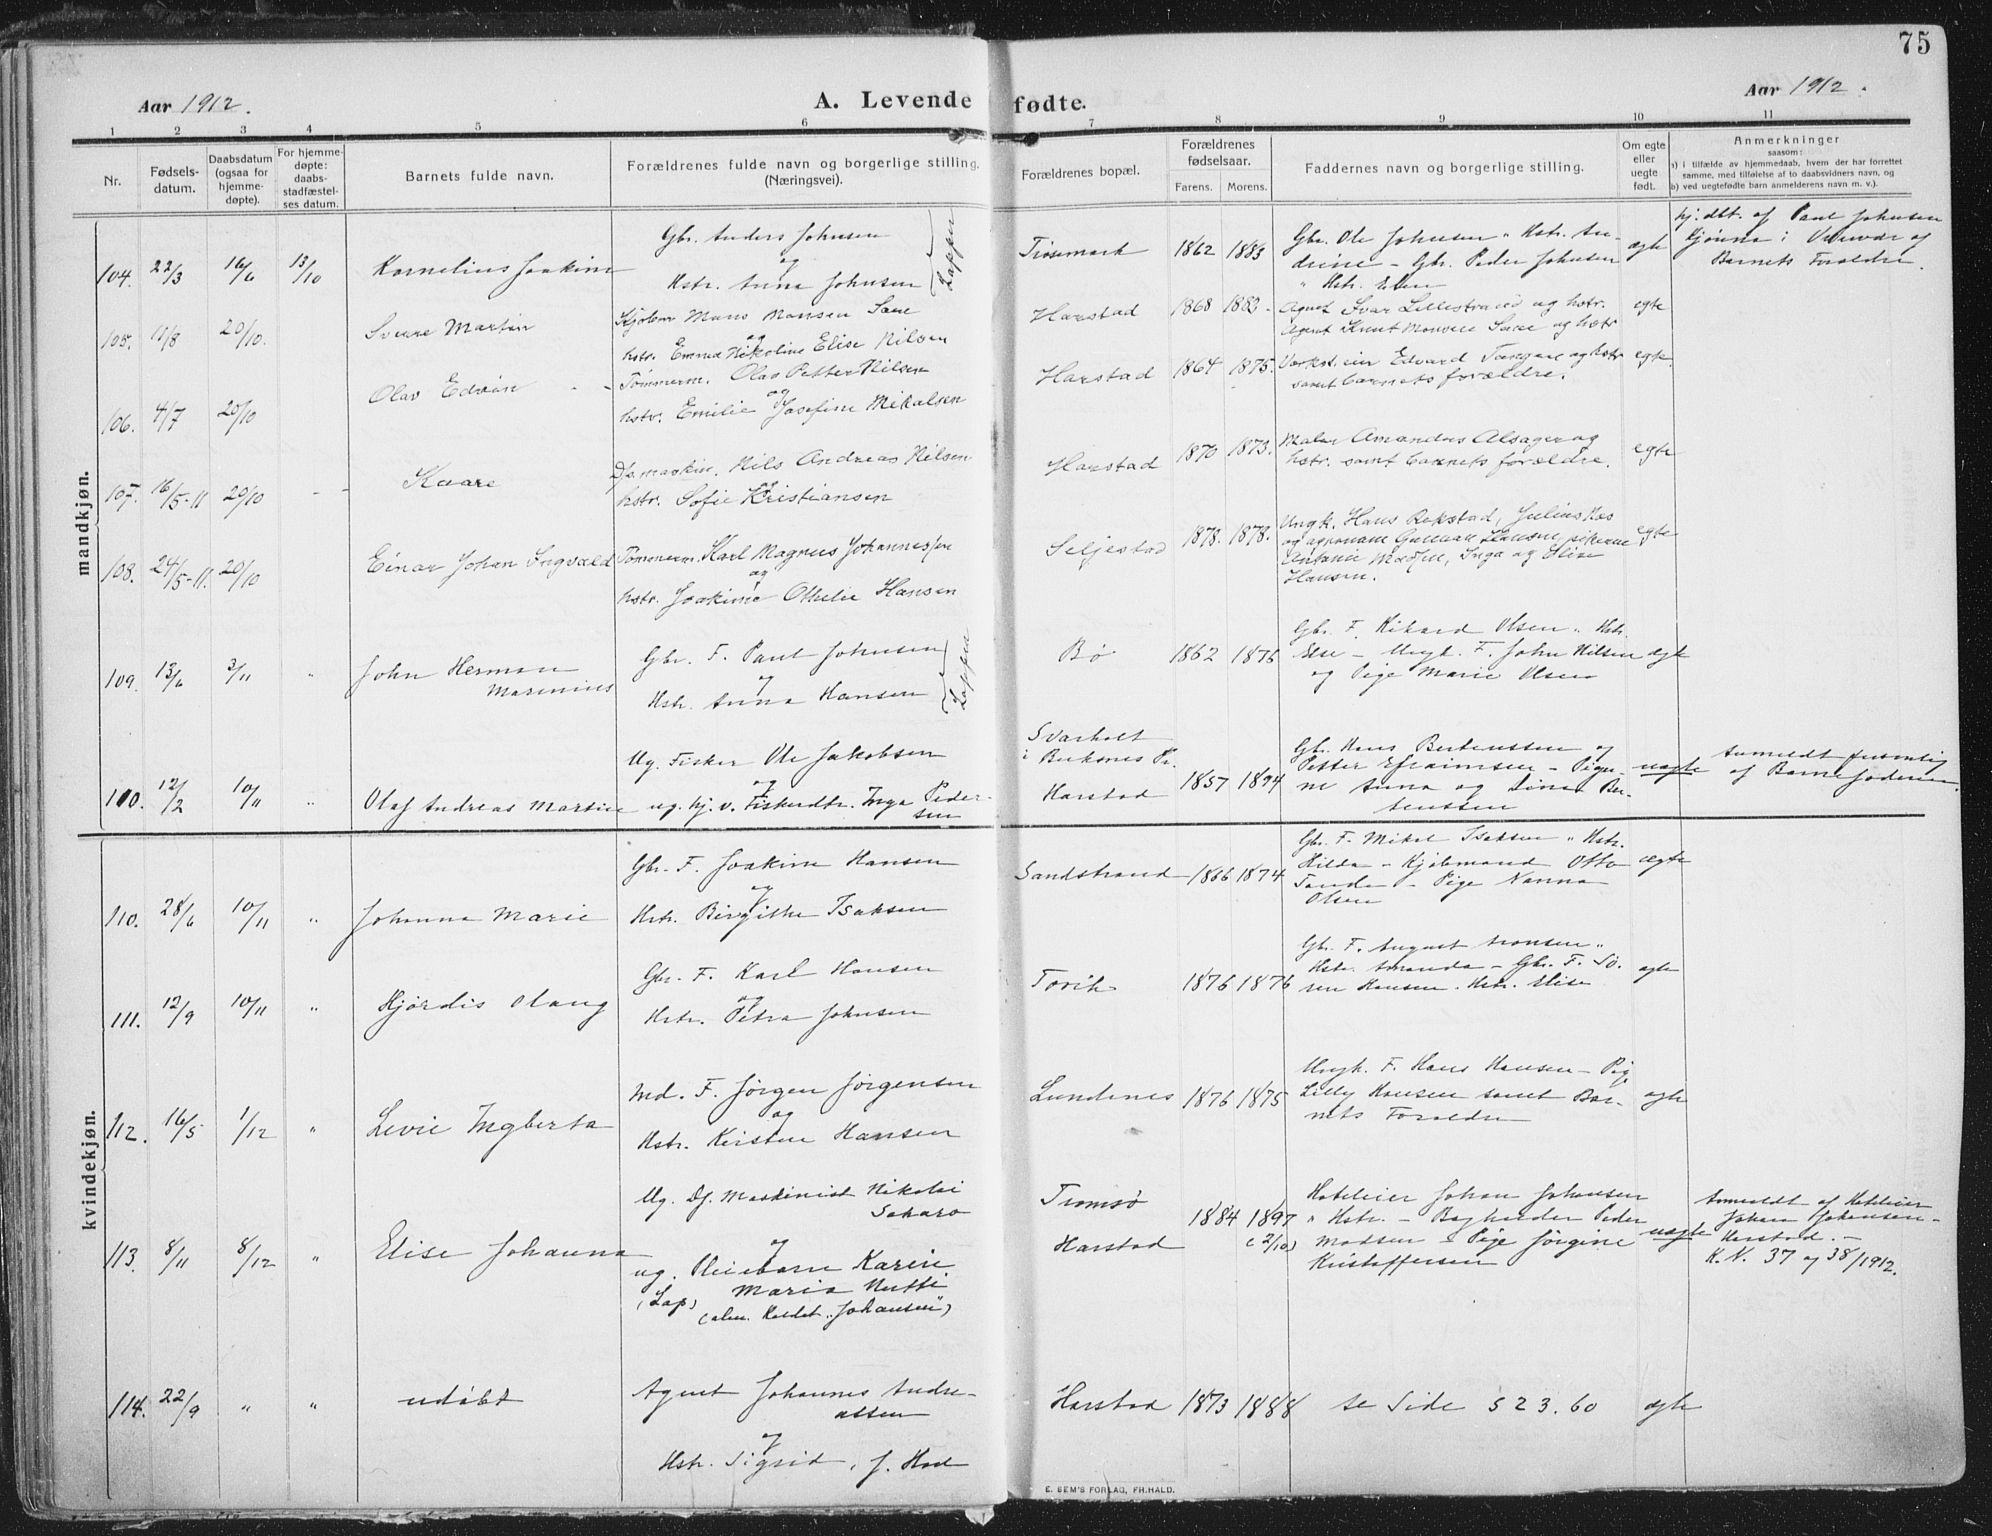 75
Aar 1912.
A. Levende fødte.
Aar 1912.
1 2 3 4 5 6 7 8 9 10 11
Nr.
Fødsels-
datum.
Daabsdatum
(ogsaa for
hjemme-
døpte).
For hjemme-
døpte:
daabs-
stadfæstel-
ses datum.
Barnets fulde navn.
Forældrenes fulde navn og borgerlige stilling.
(Næringsvei).
Forældrenes bopæl.
Forældrenes
fødselsaar.
Farens. Morens.
Faddernes navn og borgerlige stilling.
Om egte
eller
uegte
født.
Anmerkninger
saasom:
a) i tilfælde av hjemmedaab, hvem der har forrettet
samme, med tilføielse af to daabsvidners navn, og
b) ved uegtefødte barn anmelderens navn m. v.).
mandkjøn.
104. 22/3 16/6 13/10 Kornelius Joakim
Gbr. Anders Johnsen
og
Hstr. Anna Johnsen
Lapper
Trøsemark 1862 1883
Gbr. Ole Johnsen " Hstr. An-
drine - Gbr. Peder Johnsen
" Hstr. Elen
ægte
hj. dbt. af Paul Johnsen
i og
Barnets Forældre.
105. 11/8 20/10. Sverre Martin
Hans Hansen
og
hstr. Emma Nikoline Elise Nilsen
Harstad 1868 1882.
Agent Ivar Lillestrand og hstr.
Agent Knut og hstr
egte
106. 4/7 20/10 Olav Edvin - -
Tømmerm. Olav Petter Nilsen
og
hstr. Emilie Josefine Mikalsen
Harstad 1864 1875.
Verkst. eier Edvard Tangen og hstr
samt barnets forældre.
egte.
107. 16/5-11 20/10 - - Kaare
Ds. maskin. Nils Andreas Nilsen
og
hstr. Sofie Kristiansen
Harstad 1870 1873.
Maler Amandus Alsager og
hstr. samt barnets forældre.
egte
108. 24/5-11. 20/10 Einar Johan Ingvald
Tømmerm. Karl Magnus Johannessen
og
hstr. Joakime Othelie Hansen
Seljestad 1878. 1878.
Ungk. Hans Rokstad, Julius Næs
og agronom Gunnar Hansen, pikerne
Antonie Madsen, Inga og Elise
Hansen.
egte
109. 13/6 3/11 " John Herman
Marenius
Gbr. F. Paul Johnsen
og
Hstr. Anna Hansen
Lapper
Bø 1862 1876
Gbr. F. Rikard Olsen " Hstr.
Else - Ungk. F. John Nilsen
og Pige Marie Olsen
ægte
110. 12/2 10/11 " Olaf Andreas Martin
Ug. Fisker Ole Jakobsen
og
ug. hj. v. Fiskerdtr. Inga Peder-
sen
Svarholt
i Pr.
Harstad 1857 1894
Gbr. Hans Bertenssen og
Petter Efraimsen - Piger-
ne Anna og Lina Ber-
tenssen
uægte
Anmeldt
af Barnefaderen
kvindekjøn.
110. 28/6 10/11 " Johanna Marie
Gbr. F. Joakim Hansen
og
Hstr. Birgithe Isaksen
Sandstrand 1866 1874
Gbr. F. Mikel Isaksen " Hstr.
Hilda - Kjøbmand Otto
Tande - Pige Nanna
Olsen
ægte
111. 12/9 10/11 " Hjørdis Olaug
Gbr. F. Karl Hansen
og
Hstr. Petra Johnsen
1876 1876
Gbr. F. August Aronsen "
Hstr. Amanda - Gbr. F. Sø-
ren Hansen. Hstr. Elise
ægte
112. 16/5 1/12 " Levie Ingberta
Md. F. Jørgen Jørgensen
og
Hstr. Kirsten Hansen
Lundenes 1876 1875
Ungk. F. Hans Hansen - Pige
Lilly Hansen samt Bar-
nets Forældre
ægte
113. 8/11 8/12 " Elise Johanna
Ug. Ds. Maskinist Nikolai
og
ug. Pleiebarn Karen
(Lap) Maria Nutti
(alm. Kaldet "Johansen")
Tromsø
Harstad 1884 1897
(2/10)
Hoteleier Johan Johansen
" Hstr. - Bogholder Peder
Madsen - Pige Jørgine
Kristoffersen
uægte
Anmeldt af Hoteleier
Johan Johansen -
Harstad. -
K. N. 37 og 38/1912.
114. 22/9 " " udøbt
Agent Johannes Andre-
assen
og
Hstr. Sigrid, f.
Harstad 1873 1888 se Side 523.60 ægte
E. SEM'S FORLAG, FR.HALD.